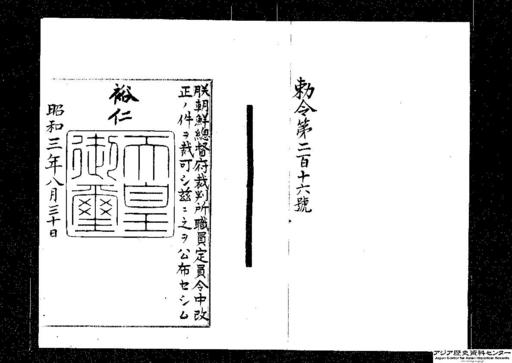 勅令第二百十六號
朕朝鮮總督府裁判所職員定員令中改
正ノ件ヲ裁可シ茲ニ之ヲ公布セシム
裕仁
天皇
御璽
昭和三年八月三十日
アジア歴史資料センター
Japan Center for Asian Historical Records